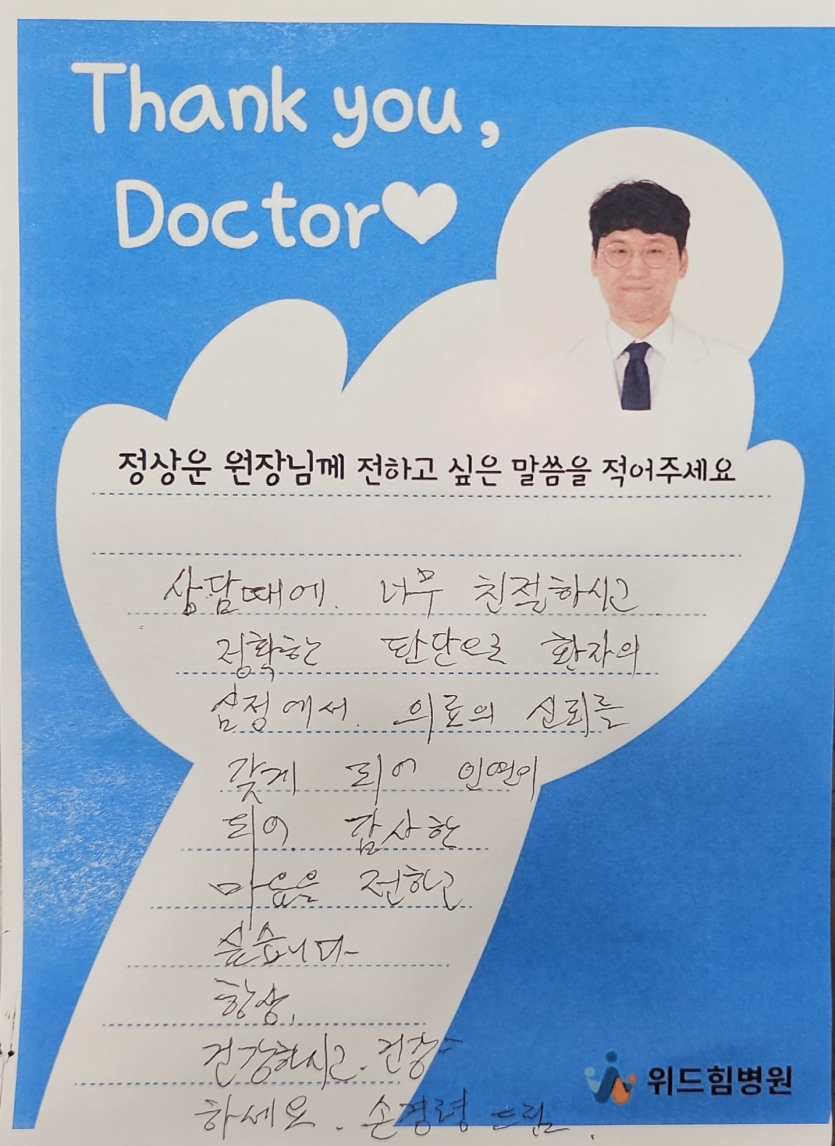 Thank you,
Doctor
정상운 원장님께 전하고 싶은 말씀을 적어주세요
상담때에. 너무 친절하시고
정확한 판단으로 환자의
심정에서. 의료의 신뢰를
갖게 되어 인연이
되어. 감사한
마음을 전하고
싶습니다
항상.
건강하시고. 건강
하세요. 손경령 드림.
위드힘병원